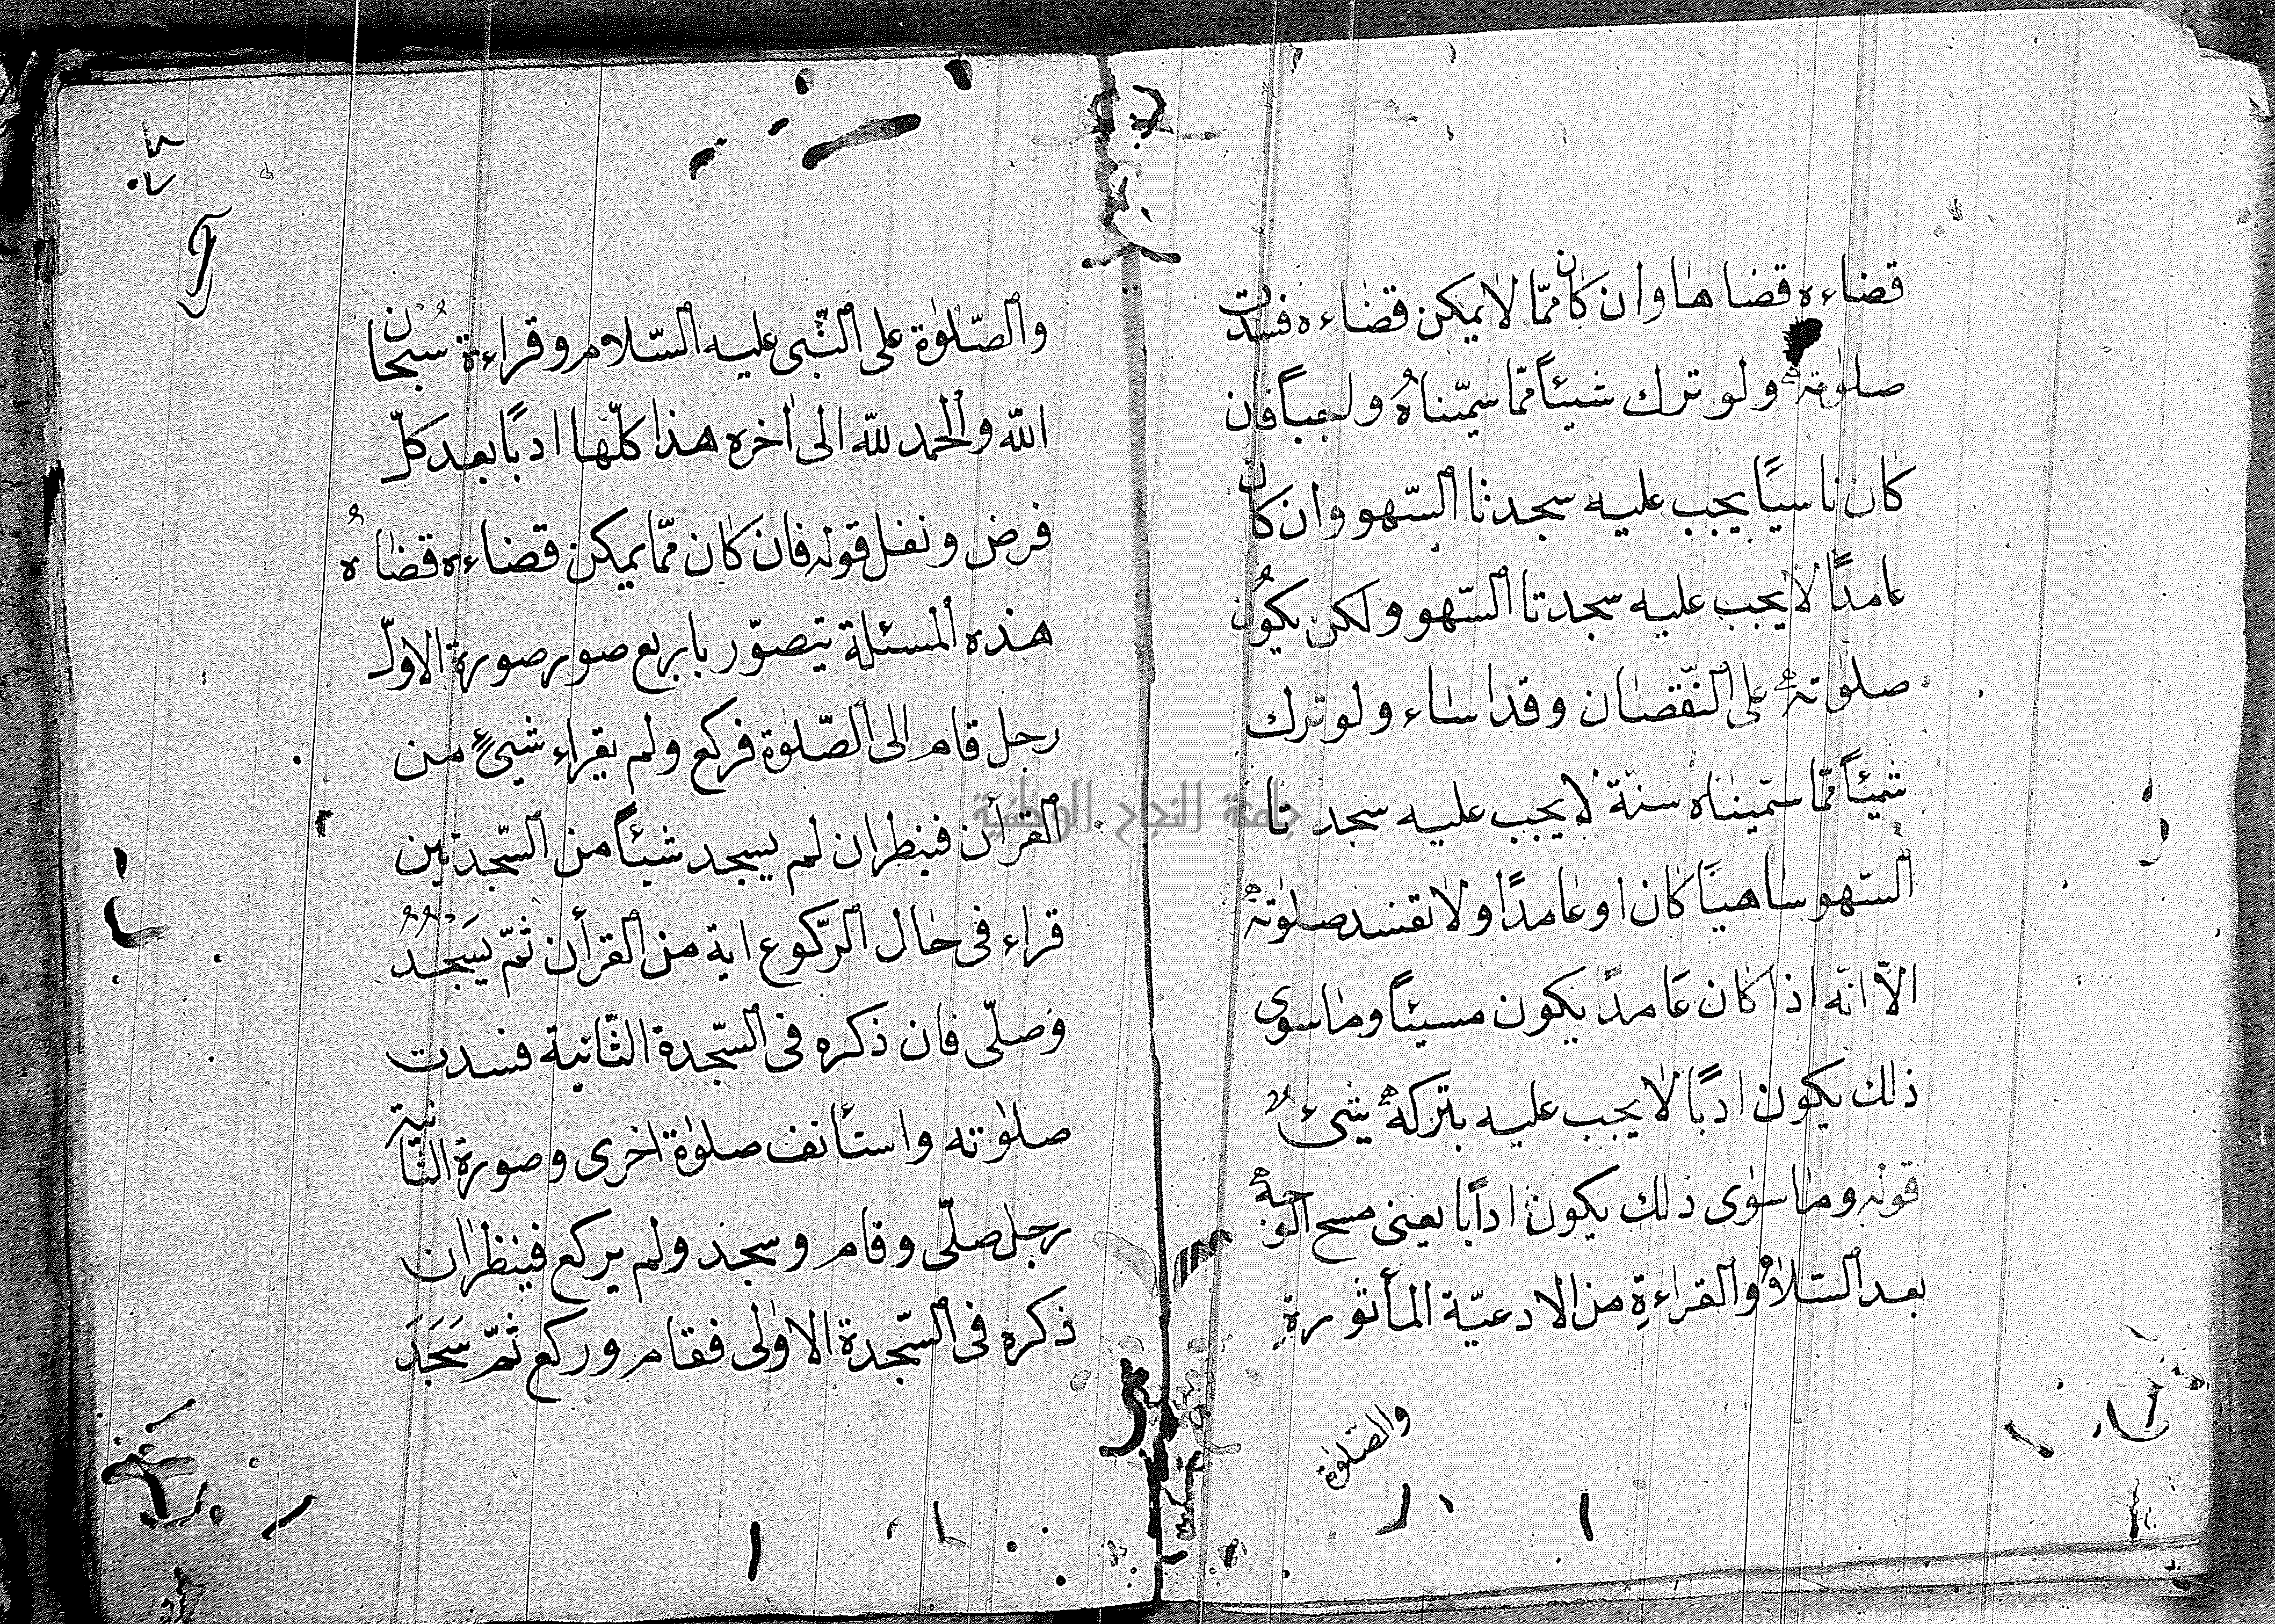 قضاءه قضاها وان كان ممّا لا يمكن قضاءه فسدت
صلوته ولو ترك شيئاً ممّا سمّيناهُ واجباً فان
كان ناسيًا يجب عليه سجدتا السّهو وان كان
عامدًا لا يجب عليه سجدتا السّهو ولكن يكُون
صلوته على النّقصان وقد اساء ولو ترك
شيئاً ممّا سمّيناه سنّة لا يجب عليه سجدتا
السّهو ساهيًا كان او عامدًا ولا تفسد صلوته
الّا انّه اذا كان عامدًا يكون مسيئاً وما سوى
ذلك يكون ادبًا لا يجب عليه بتركه شئ
قوله وما سوى ذلك يكون ادابًا يعنى مسح الوجه
بعد السّلام والقراءةِ من الادعيّة المأثورة
والصّلوة
والصّلوة على النّبى عليه السّلام وقراءة سُبحان
اللّه والحمد للّه الى اخره هذا كلّها ادبًا بعد كلّ
فرض ونفل قوله فان كان ممّا يمكن قضاءه قضاهُ
هذه المسئلة يتصوّر باربع صور صورة الاوّل
رجل قام الى الصّلوة فركع ولم يقراء شيئٍ من
القرأن فينظر ان لم يسجد شيئاً من السّجدتين
قراء فى حال الرّكوع اية من القرأن ثمّ يَسَجُدُ
وصلّى فان ذكره فى السّجدة الثّانية فسدت
صلوته واستأنف صلوة اخرى وصورة الثانية
رجل صلّى وقام وسجد ولم يركع فينظر ان
ذكره فى السّجدة الاولى فقام وركع ثمّ سَجَدَ
جامعة النجاح الوطنية